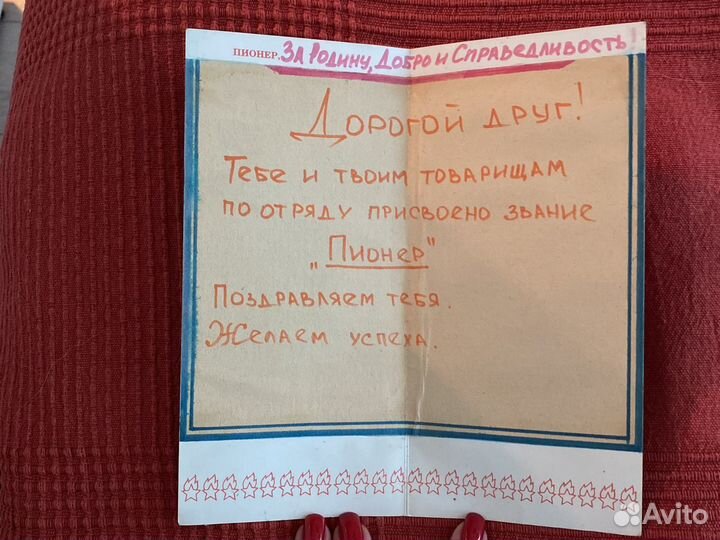 ПИОНЕР. За Родину, Добро и Справедливость!
Дорогой друг!
Тебе и твоим товарищам
по отряду присвоено звание
„Пионер"
Поздравляем тебя.
Желаем успеха.
Avito